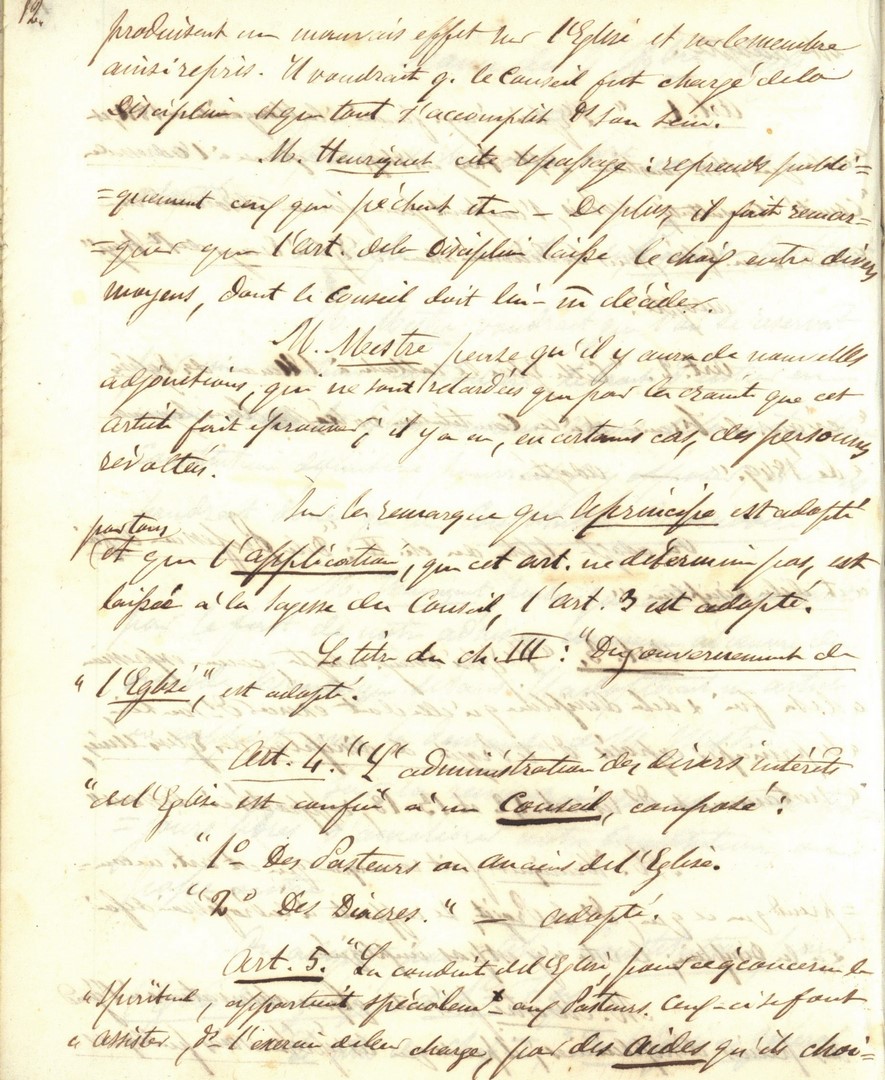 12.
produisent un mauvais effet sur l'Eglise et sur le membre
ainsi repris. Il voudrait q. le Conseil fut chargé de la
discipline et que tout s'accomplit ds son sein.
M. Henriquet cite le passage : reprends publi=
=quement ceux qui pèchent etc – De plus, il fait remar=
=quer que l'art. de la Discipline laisse le choix entre divers
moyens, dont le Conseil doit lui-m décider.
M. Mestre pense qu'il y aura de nouvelles
adjonctions, qui ne sont retardées que par la crainte que cet
article fait éprouver; il y a eu, en certains cas, des personnes
révoltées.
Sur la remarque que le principe est adopté
par tous
et que l'application, que cet art. ne détermine pas, est
laissée à la sagesse du Conseil, l'art. 3 est adopté.
Le titre du ch. III : "Du gouvernement de
" l'Eglise", est adopté.
Art. 4. "L'administration des divers intérêts
"de l'Eglise est confiée à un Conseil, composé :
"1o– Des Pasteurs ou anciens de l'Eglise.
"2o Des Diacres." — adopté.
Art. 5. "La conduite de l'Eglise, pour ce q concerne le
" spirituel, appartient spécialemt aux Pasteurs. Ceux-ci se font
" assister, ds l'exercice de leur charge, par des aides qu'ils choi=